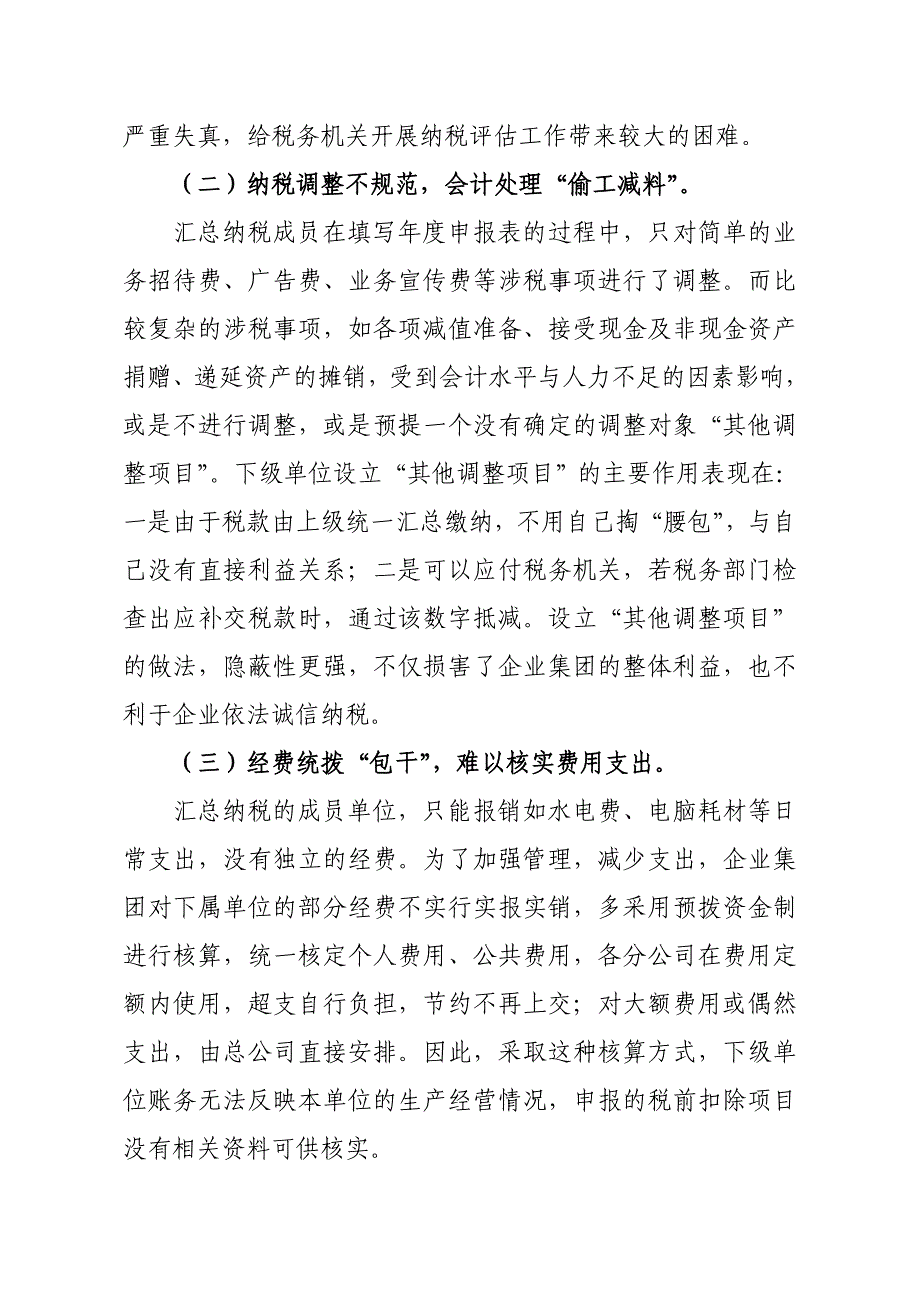 严重失真，给税务机关开展纳税评估工作带来较大的困难。
（二）纳税调整不规范，会计处理“偷工减料”。
汇总纳税成员在填写年度申报表的过程中，只对简单的业
务招待费、广告费、业务宣传费等涉税事项进行了调整。而比
较复杂的涉税事项，如各项减值准备、接受现金及非现金资产
捐赠、递延资产的摊销，受到会计水平与人力不足的因素影响，
或是不进行调整，或是预提一个没有确定的调整对象“其他调
整项目”。下级单位设立“其他调整项目”的主要作用表现在：
一是由于税款由上级统一汇总缴纳，不用自己掏“腰包”，与自
己没有直接利益关系；二是可以应付税务机关，若税务部门检
查出应补交税款时，通过该数字抵减。设立“其他调整项目”
的做法，隐蔽性更强，不仅损害了企业集团的整体利益，也不
利于企业依法诚信纳税。
（三）经费统拨“包干”，难以核实费用支出。
汇总纳税的成员单位，只能报销如水电费、电脑耗材等日
常支出，没有独立的经费。为了加强管理，减少支出，企业集
团对下属单位的部分经费不实行实报实销，多采用预拨资金制
进行核算，统一核定个人费用、公共费用，各分公司在费用定
额内使用，超支自行负担，节约不再上交；对大额费用或偶然
支出，由总公司直接安排。因此，采取这种核算方式，下级单
位账务无法反映本单位的生产经营情况，申报的税前扣除项目
没有相关资料可供核实。